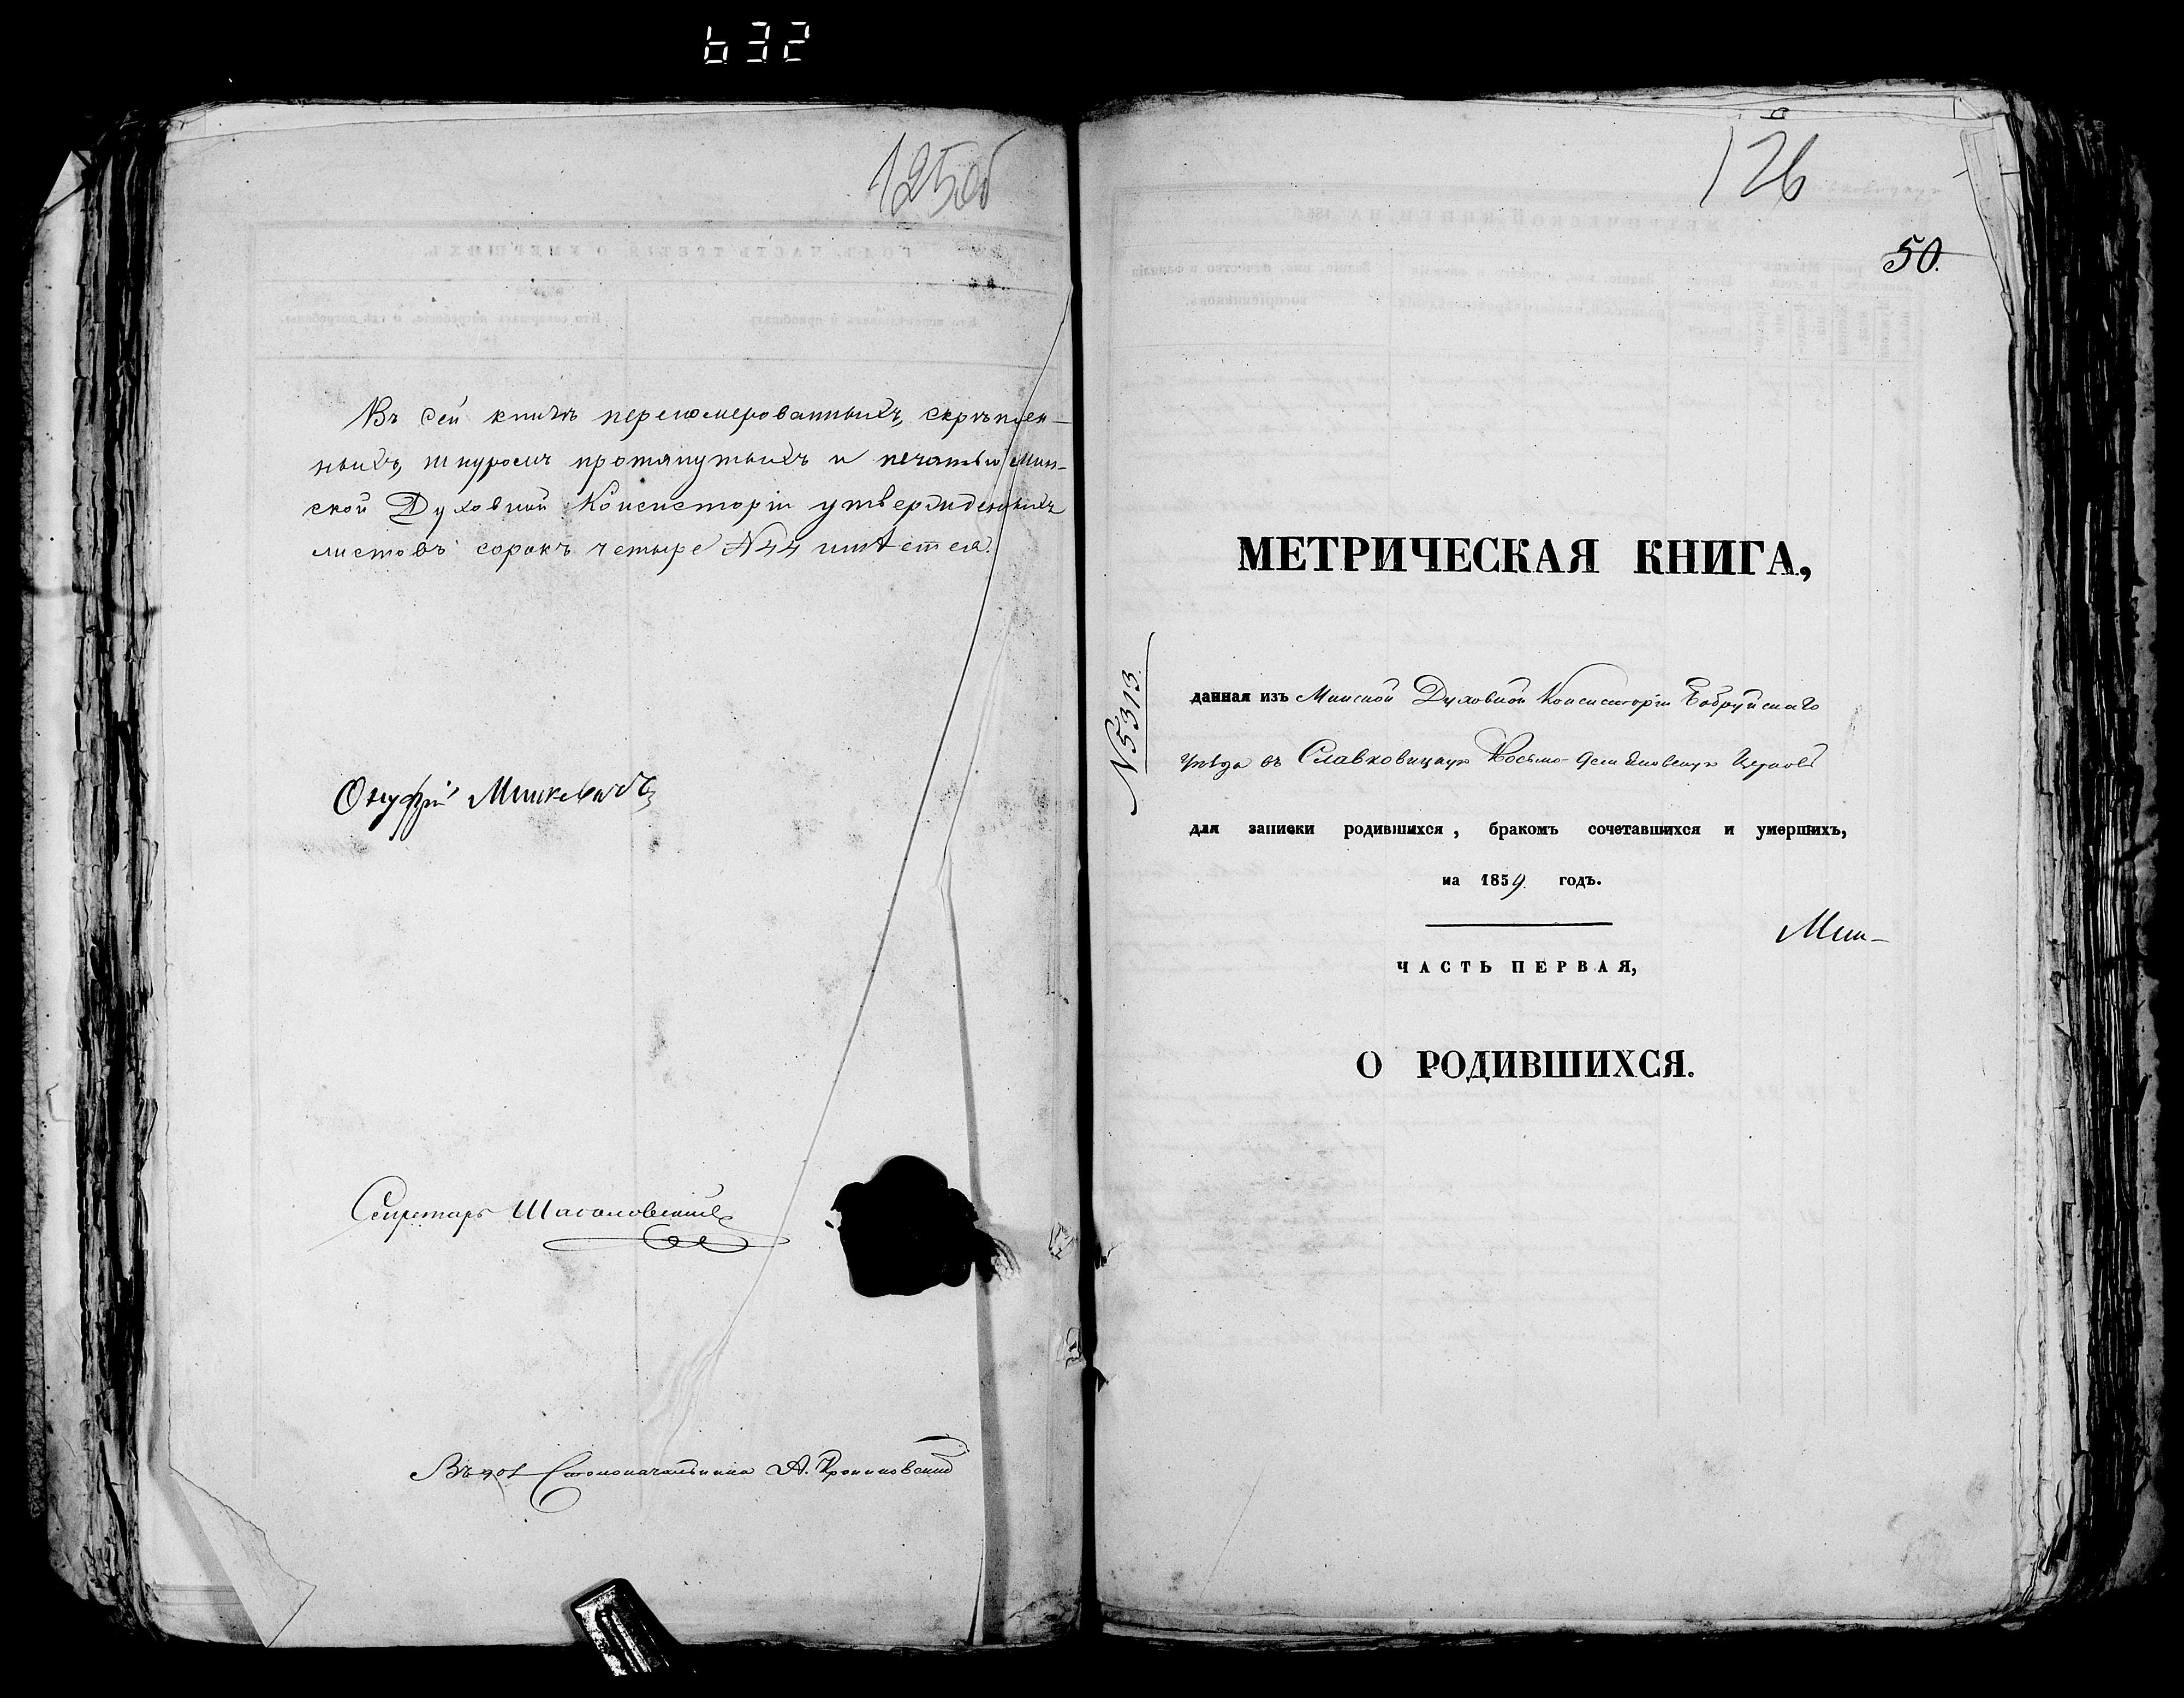 632
125об
Въ сей книгѣ перенумерованныхъ, скрѣплен-
ныхъ, шнуромъ протянутыхъ и печатью Мин-
ской Духовной Консисторіи утвержденныхъ
листовъ сорокъ четыре №44 имѣется.
Онуфрій
Секретарь
Столоначальника А.
126
50.
МЕТРИЧЕСКАЯ КНИГА,
№5313.
данная изъ Минской Духовной Консисторіи Бобруйскаго
уѣзда въ Славковицкую Косьмо-Деміановскую Церковь
для записки родившихся, бракомъ сочетавшихся и умершихъ,
на 1859 годъ.
Мин-
ЧАСТЬ ПЕРВАЯ,
О РОДИВШИХСЯ.